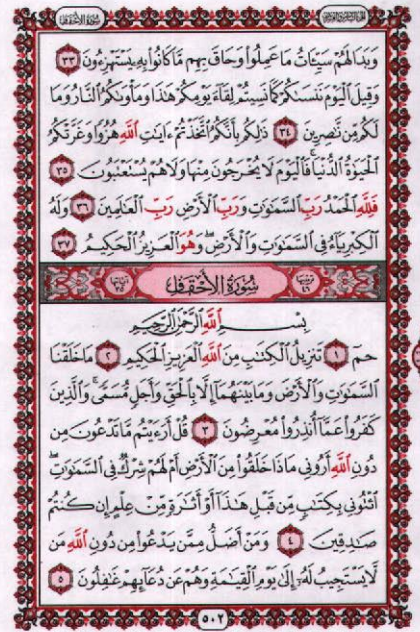 سُورَةُ الأَحْقَافِ
وَبَدَا لَهُمْ سَيِّـَٔاتُ مَا عَمِلُوا۟ وَحَاقَ بِهِم مَّا كَانُوا۟ بِهِۦ يَسْتَهْزِءُونَ ٣٣
وَقِيلَ ٱلْيَوْمَ نَنسَىٰكُمْ كَمَا نَسِيتُمْ لِقَآءَ يَوْمِكُمْ هَٰذَا وَمَأْوَىٰكُمُ ٱلنَّارُ وَمَا
لَكُم مِّن نَّٰصِرِينَ ٣٤ ذَٰلِكُم بِأَنَّكُمُ ٱتَّخَذْتُمْ ءَايَٰتِ ٱللَّهِ هُزُوًا وَغَرَّتْكُمُ
ٱلْحَيَوٰةُ ٱلدُّنْيَا ۚ فَٱلْيَوْمَ لَا يُخْرَجُونَ مِنْهَا وَلَا هُمْ يُسْتَعْتَبُونَ ٣٥
فَلِلَّهِ ٱلْحَمْدُ رَبِّ ٱلسَّمَٰوَٰتِ وَرَبِّ ٱلْأَرْضِ رَبِّ ٱلْعَٰلَمِينَ ٣٦ وَلَهُ
ٱلْكِبْرِيَآءُ فِى ٱلسَّمَٰوَٰتِ وَٱلْأَرْضِ ۖ وَهُوَ ٱلْعَزِيزُ ٱلْحَكِيمُ ٣٧
سُورَةُ الأَحْقَافِ
بِسْمِ ٱللَّهِ ٱلرَّحْمَٰنِ ٱلرَّحِيمِ
حمٓ ١ تَنزِيلُ ٱلْكِتَٰبِ مِنَ ٱللَّهِ ٱلْعَزِيزِ ٱلْحَكِيمِ ٢ مَا خَلَقْنَا
ٱلسَّمَٰوَٰتِ وَٱلْأَرْضَ وَمَا بَيْنَهُمَآ إِلَّا بِٱلْحَقِّ وَأَجَلٍ مُّسَمًّى ۚ وَٱلَّذِينَ
كَفَرُوا۟ عَمَّآ أُنذِرُوا۟ مُعْرِضُونَ ٣ قُلْ أَرَءَيْتُم مَّا تَدْعُونَ مِن
دُونِ ٱللَّهِ أَرُونِى مَاذَا خَلَقُوا۟ مِنَ ٱلْأَرْضِ أَمْ لَهُمْ شِرْكٌ فِى ٱلسَّمَٰوَٰتِ ۖ
ٱئْتُونِى بِكِتَٰبٍ مِّن قَبْلِ هَٰذَآ أَوْ أَثَٰرَةٍ مِّنْ عِلْمٍ إِن كُنتُمْ
صَٰدِقِينَ ٤ وَمَنْ أَضَلُّ مِمَّن يَدْعُوا۟ مِن دُونِ ٱللَّهِ مَن
لَّا يَسْتَجِيبُ لَهُۥٓ إِلَىٰ يَوْمِ ٱلْقِيَٰمَةِ وَهُمْ عَن دُعَآئِهِمْ غَٰفِلُونَ ٥
٥٠٢